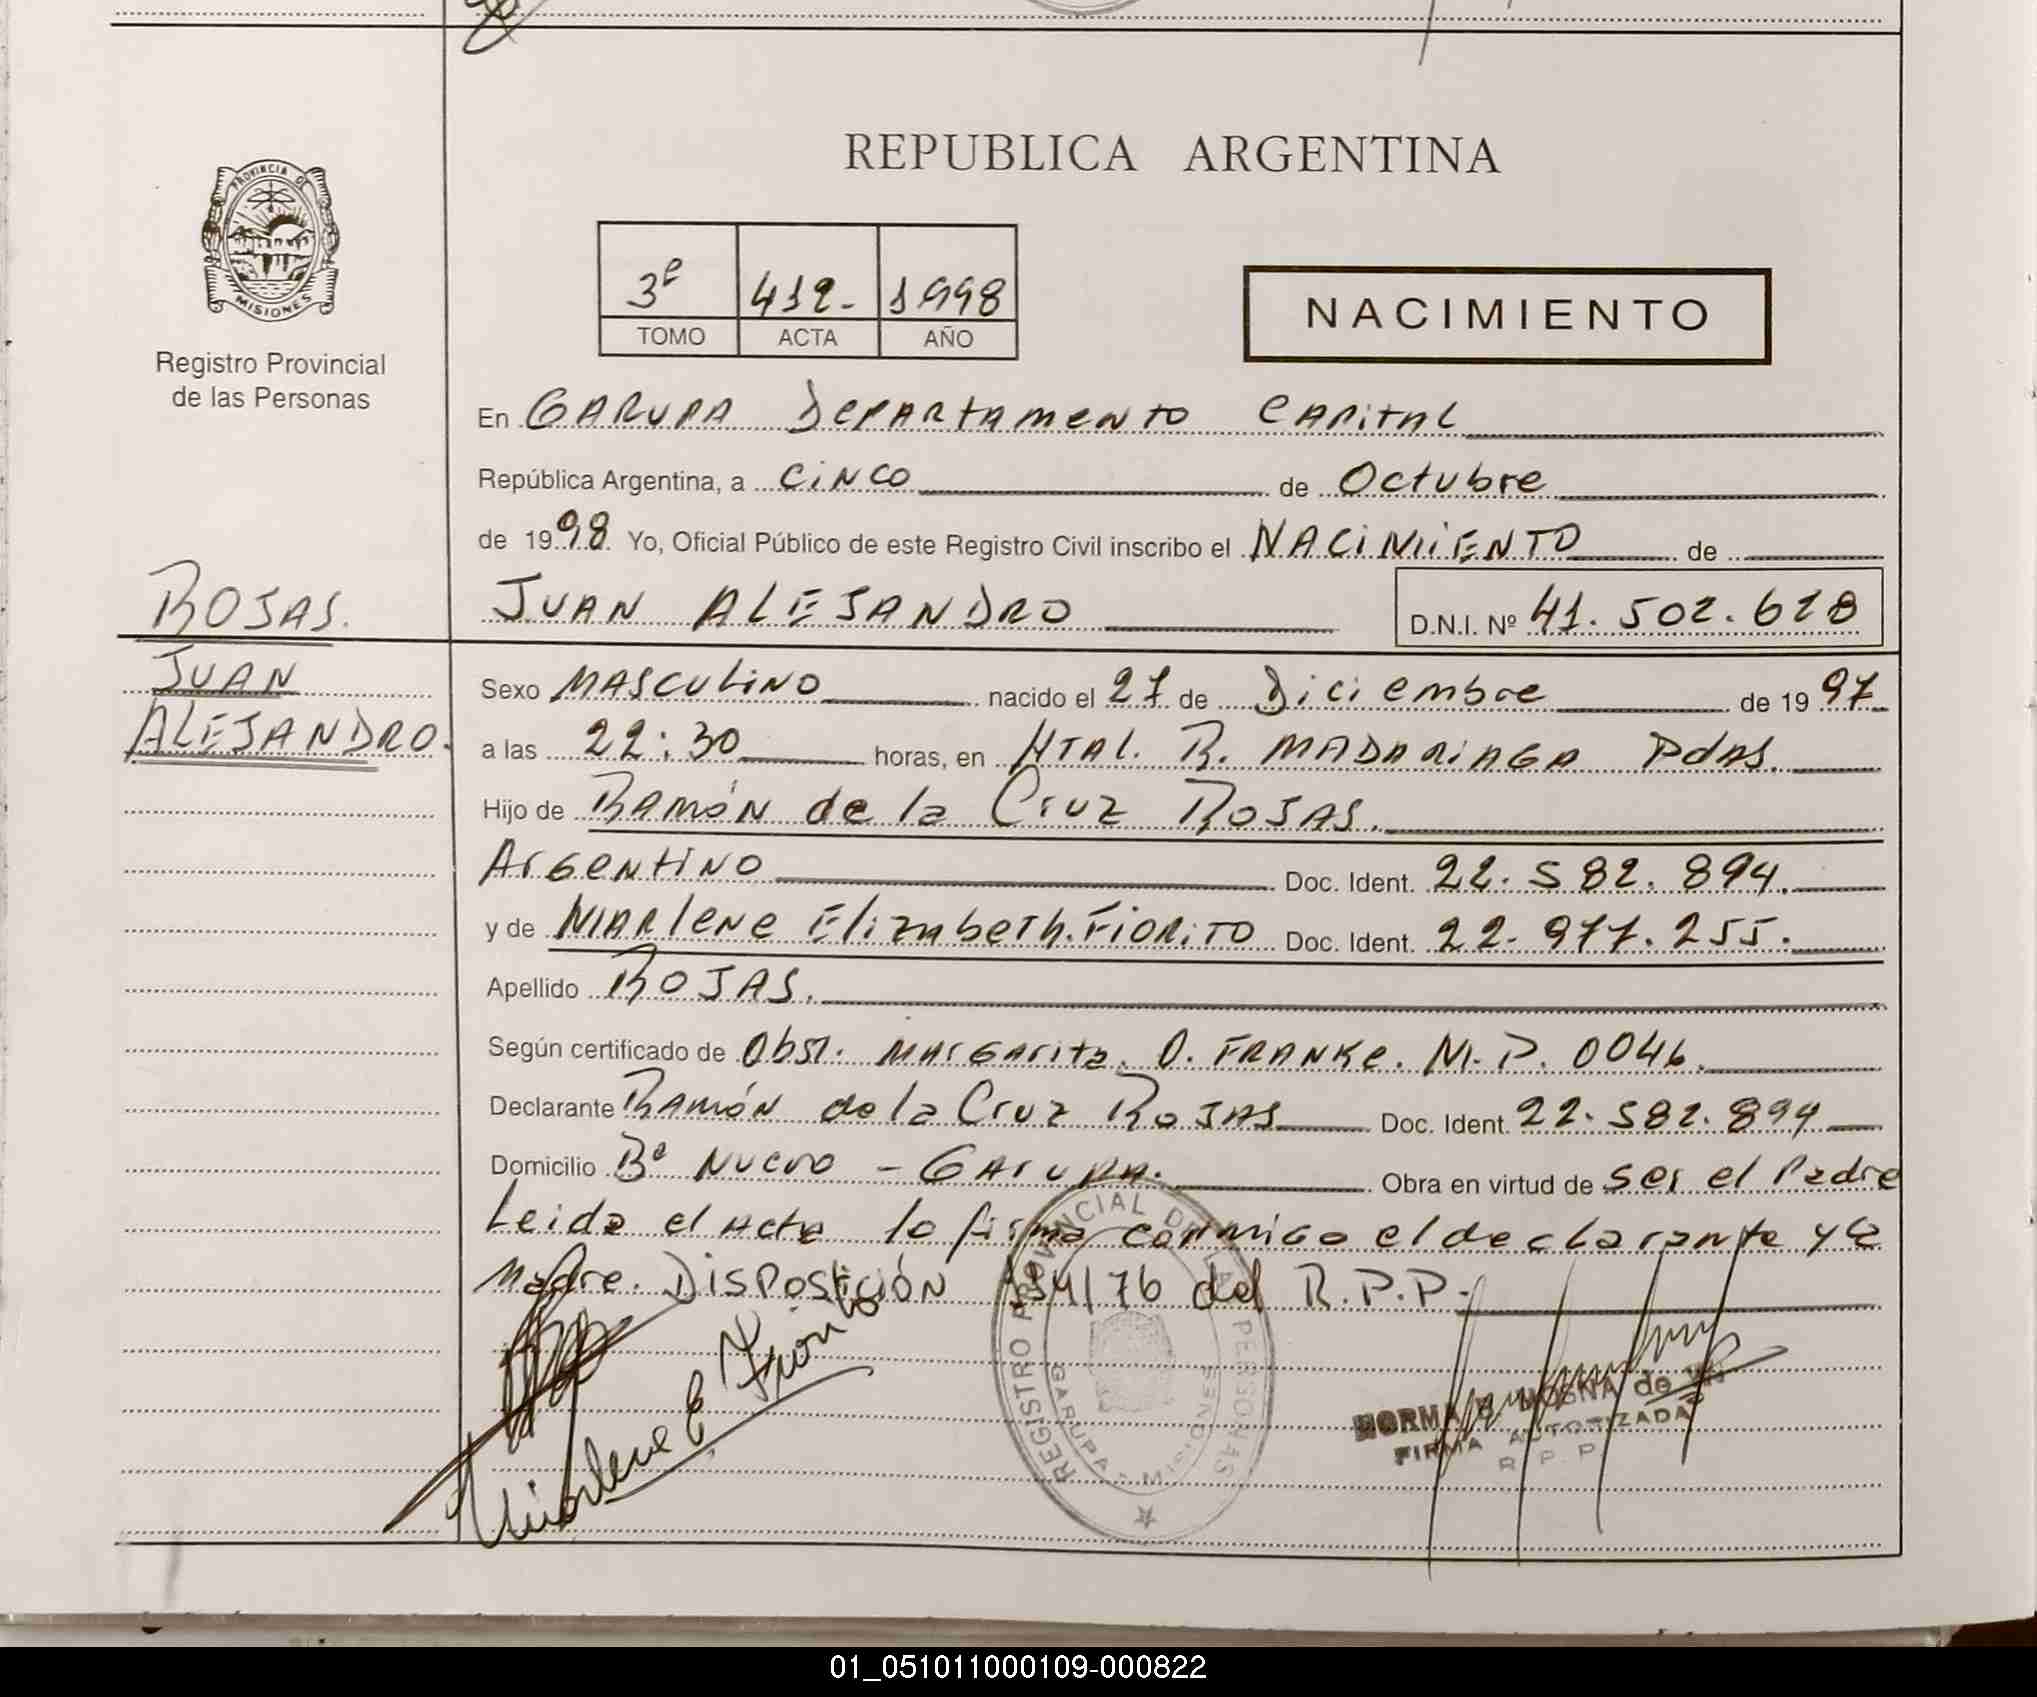 REPUBLICA ARGENTINA
PROVINCIA DE
MISIONES
Registro Provincial
de las Personas
3º 412- 1998
TOMO ACTA AÑO
NACIMIENTO
En GARUPA DEPARTAMENTO CAPITAL
República Argentina, a CINCO de Octubre
de 1998 Yo, Oficial Público de este Registro Civil inscribo el NACIMIENTO de
ROJAS.
JUAN ALEJANDRO D.N.I. Nº 41.502.628
JUAN
ALEJANDRO.
Sexo MASCULINO nacido el 27 de Diciembre de 1997
a las 22:30 horas, en HTAL. R. MADARIAGA PDAS.
Hijo de RAMÓN de la Cruz ROJAS.
Argentino Doc. Ident. 22.582.894.
y de MARLENE Elizabeth. FIORITO Doc. Ident. 22.977.255.
Apellido ROJAS.
Según certificado de Obst. Margarita. O. FRANKE. M.P. 0046.
Declarante RAMÓN de la Cruz ROJAS Doc. Ident. 22.582.894
Domicilio Bº NUEVO - GARUPA. Obra en virtud de ser el Padre
Leida el Acta lo firma conmigo el declarante y la
Madre. Disposición 134/76 del R.P.P.
Marlene E Fiorito
REGISTRO PROVINCIAL DE LAS PERSONAS
GARUPA - MISIONES
NORMA B. MOSNA de
FIRMA AUTORIZADA
R. P. P.
01_051011000109-000822